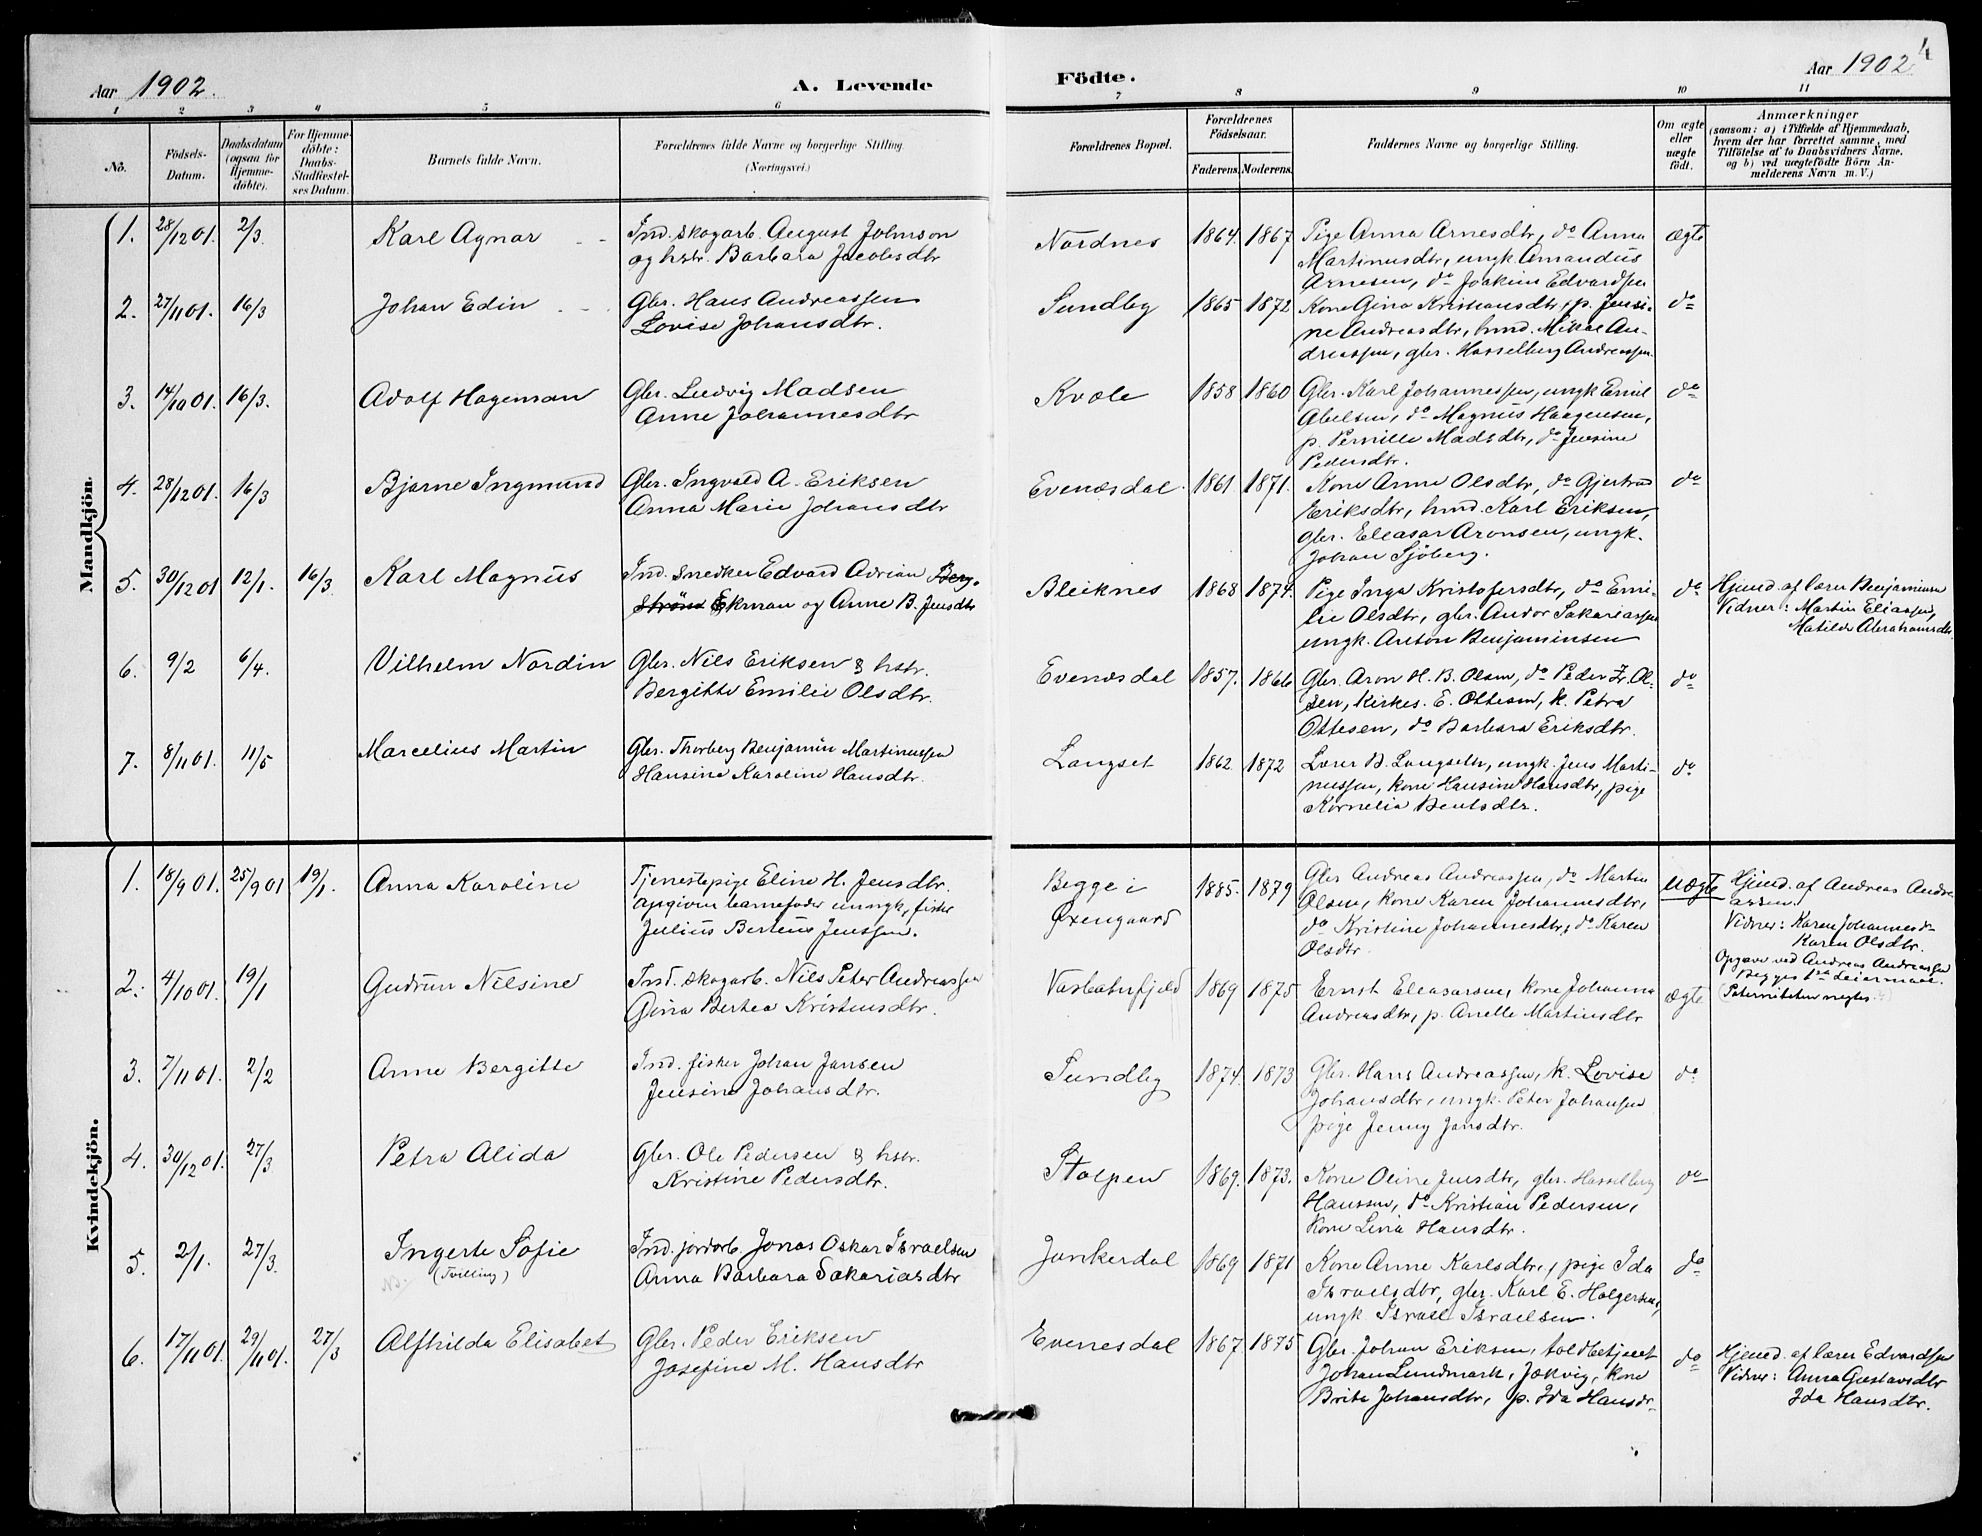 Aar 1902.
A. Levende
Födte.
Aar 1902
4
1 2 3 4 5 6 7 8 9 10 11
No.
Födsels-
Datum.
Daabsdatum
(ogsaa for
Hjemme-
döbte).
For Hjemme-
döbte:
Daabs-
Stadfæstel-
ses Datum.
Barnets fulde Navn.
Forældrenes fulde Navne og borgerlige Stilling.
(Næringsvei.)
Forældrenes Bopæl.
Forældrenes
Födselsaar.
Faderens. Moderens.
Faddernes Navne og borgerlige Stilling.
Om ægte
eller
uægte
födt.
Anmærkninger
(saasom: a) i Tilfælde af Hjemmedaab,
hvem der har forrettet samme, med
Tilföielse af to Daabsvidners Navne.
og b) ved uægtefödte Börn An-
melderens Navn m. V.)
Mandkjön.
1. 28/12 01. 2/3. Karl Agnar
Ind. skogarb. August Johnson
og hstr. Barbara Jacobsdtr
Nordnes 1864. 1867.
Pige Anna Arnesdtr, do Anna
Martinusdtr, ungk. Amandus
Arnesen, do Joakim Edvardsen
ægte
2. 27/11 01. 16/3 Johan Edin
Gbr. Hans Andreassen
Lovise Johansdtr.
Sundby 1865 1872
Kone Gina Kristiansdtr, p. Jensi-
ne Andreasdtr, hmd. Mikal An-
dreassen, gbr. Hasselberg Andreassen.
do
3. 14/10 01. 16/3. Adolf Hageman
Gbr. Ludvig Madsen
Anne Johannesdtr
Kvæle 1858 1860
Gbr. Karl Johannessen, ungk Emil
Abelsen, do Magnus Haagensen,
p. Pernille Madsdtr, do Jensine
Pedersdtr.
do
4. 28/12 01. 16/3 Bjarne Ingmund
Gbr. Ingvald A. Eriksen
Anna Marie Johansdtr
Evenesdal. 1861 1871.
Kone Anne Olsdtr, do Gjertrud
Eriksdtr, hmd. Karl Eriksen,
gbr. Eleasar Aronsen, ungk.
Johan Sjöberg.
do
5. 30/12 01 12/1. 16/3. Karl Magnus
Ind. snedker Edvard Adrian Berg-
ström Ekman og Anne B. Jensdtr
Bleiknes 1868 1874.
Pige Inga Kristofersdtr, do Emi-
lie Olsdtr, gbr. Andor Sakariassen
ungk. Anton Benjaminsen
do
Hjemd. af lærer Benjaminsen
Vidner: Martin Eliassen,
Matilde Abrahamsdtr.
6. 9/2 6/4. Vilhelm Nordin
Gbr. Nils Eriksen & hstr.
Bergitte Emilie Olsdtr.
Evenesdal 1857. 1866
Gbr. Aron H. B. Olsen, do Peder Z. Ol-
sen, kirkes. E. Ottesen, k. Petra
Ottesen, do Barbara Eriksdtr.
do
7. 8/11 01. 11/5 Marcelius Martin
Gbr. Thorberg Benjamin Martinussen
Hansine Karoline Hansdtr.
Langset 1862 1872
Lærer B. Langseth, ungk. Jens Marti-
nussen, kone Hansine Hansdtr, pige
Kornelia Bentsdtr.
do
Kvindekjön.
1. 18/9 01. 25/9 01 19/1. Anna Karoline
Tjenestepige Eline H. Jensdtr.
opgiven barnefader ungk, fisker
Julius Berteus Jenssen.
Begge i
Øxengaard
1885. 1879
Gbr Andreas Andreassen, do Martin
Olsen, kone Karen Johannesdtr,
do Kristine Johannesdtr, do Karen
Olsdtr.
uægte
Hjemd. af Andreas Andre-
assen.
Vidner: Karen Johannesd-
Karen Olsdtr.
Opgave ved Andreas Andreassen
Begges 1ste Leiermaal.
(Paterniteten negtes.)
2. 4/10 01. 19/1 Gudrun Nilsine
Ind. skogarb. Nils Peter Andreassen
Gina Bertea Kristensdtr.
Vasbotnfjeld 1869 1875
Ernst Eleasarsen, kone Johanna
Andreasdtr, p. Anelle Martinsdtr
ægte
3. 7/11 01. 2/2 Anne Bergitte
Ind. fisker Johan Jansen
Jensine Johansdtr.
Sundby 1874. 1873
Gbr. Hans Andreassen, k. Lovise
Johansdtr, ungk. Peter Johansen
pige Jenny Jansdtr.
do
4. 30/12 01. 27/3 Petra Alida
Gbr. Ole Pedersen & hstr.
Kristine Pedersdtr.
Stolpen 1869. 1873.
Kone Oline Jensdtr, gbr. Hasselberg
Hanssen, do Kristian Pedersen,
kone Lina Hansdtr.
do
5. 2/1. 27/3. Ingerte Sofie
(Tvilling)
Ind. jordarb. Jonas Oskar Israelsen
Anna Barbara Sakariasdtr
Junkerdal 1869 1871
Kone Anne Karlsdtr, pige Ida
Israelsdtr, gbr. Karl E. Holgersen,
ungk Israel Israelsen.
do
6. 17/11 01. 29/11 01. 27/3 Alfhilda Elisabet
Gbr. Peder Eriksen
Josefine M. Hansdtr
Evenesdal 1867. 1875
Gbr. Johan Eriksen, toldbetjent
Johan Lundmark, Jækvig, kone
Brita Johansdtr, p. Ida Hansdr-
do
Hjemd. af lærer Edvardsen
Vidner: Anna Gustavsdtr
Ida Hansdtr.